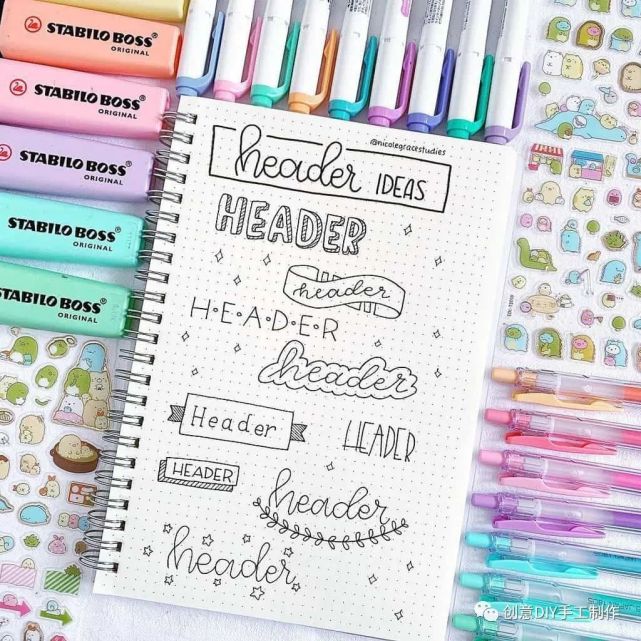 STABILO BOSS®
ORIGINAL
STABILO BOSS®
ORIGINAL
STABILO BOSS®
ORIGINAL
STABILO BOSS®
ORIGINAL
STABILO BOSS®
ORIGINAL
@nicolegracestudies
header IDEAS
HEADER
header
H•E•A•D•E•R
header
Header
HEADER
HEADER
header
header
创意DIY手工制作